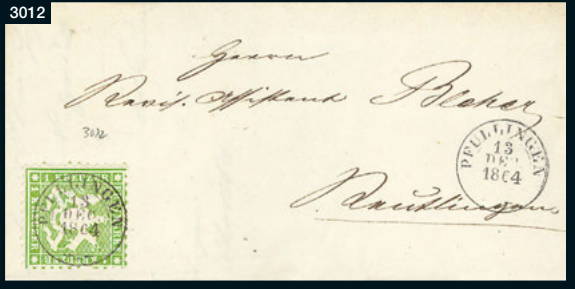 3012
Herrn
Revis. Assistent Becher
3012
PFULLINGEN
13
DEC
1864
PFULLINGEN
13
DEC
1864
Reutlingen